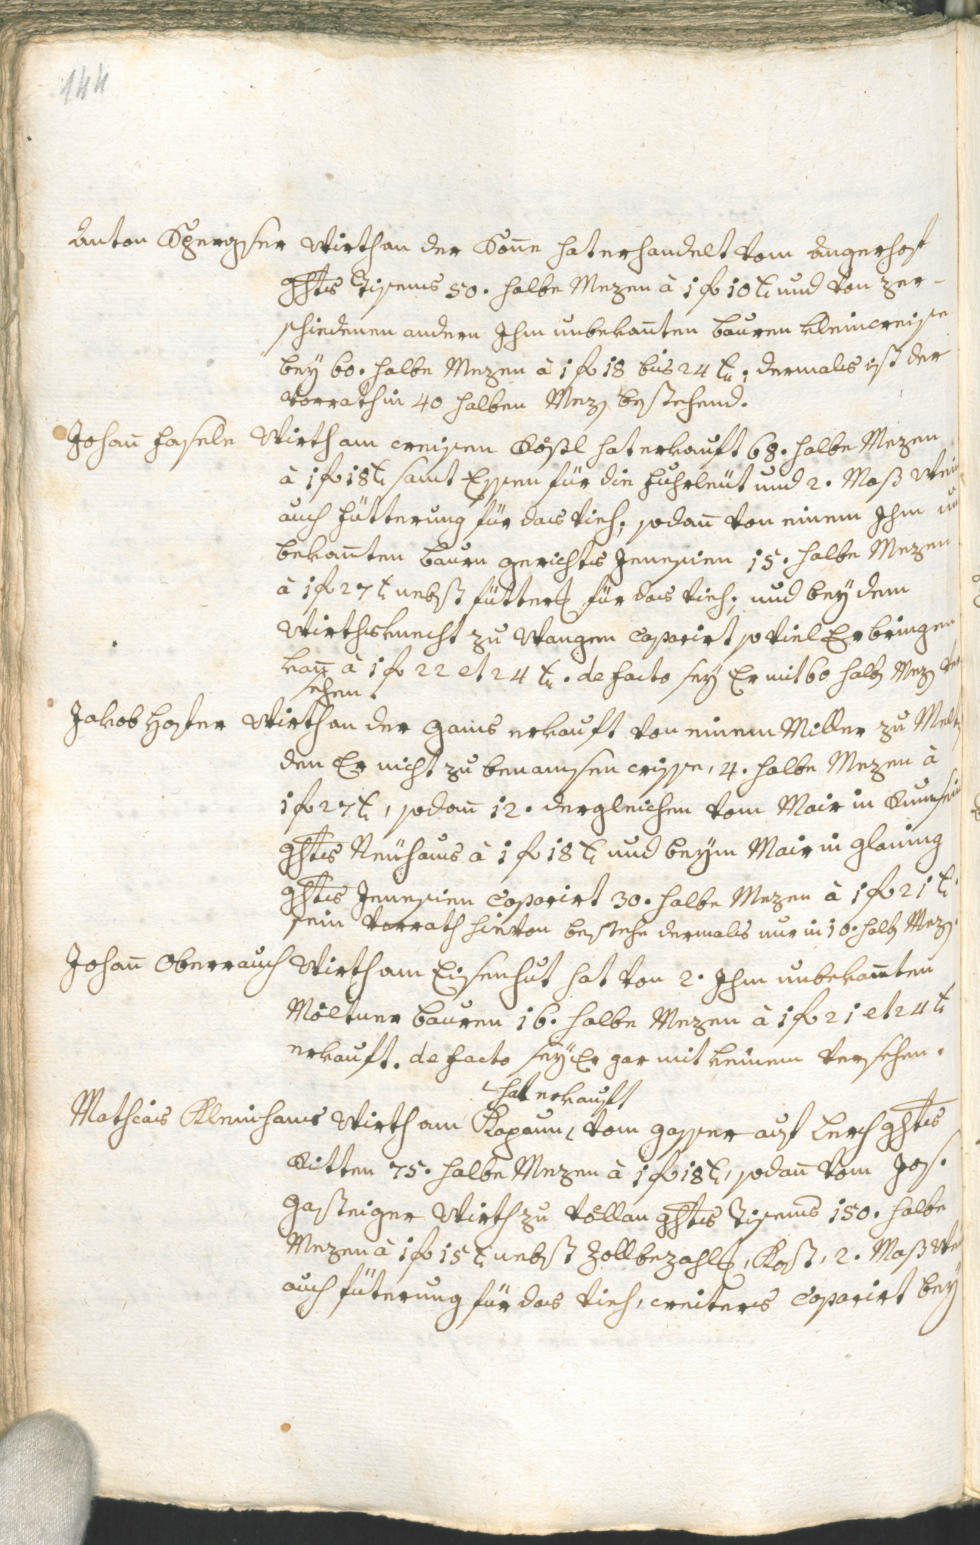 144
Anton Spergser Wirth an der Sonne hat erhandelt vom Angerhof
ghts Tisens 50. halbe Mezen à 1 f 10 x und von zer-
schiedenen andern Ihm unbekanten Bauren kleinweise
bey 60. halbe Mezen à 1 f 18 bis 24 x; dermals ist der
Vorrath in 40 halben Mez bestehend.
Johan Wirth am weissen Rößl hat erkauft 68. halbe Mezen
à 1 f 18 x samt Essen für die Fuhrleüt und 2. Maß Wein
auch Fütterung für das Vieh, sodan von einem Ihm un
bekanten Baurn gerichts Jenesien 15. halbe Mezen
à 1 f 27 x nebst fütters für das Vieh; und bey dem
Wirthsknecht zu Wangen caparirt so viel Er bringen
kan à 1 f 22 et 24 x. de facto sey Er mit 60 halb Mez ver
sehen.
Jakob Hofer Wirth an der Gans erkauft von einem Müller zu Melt
den Er nicht zu benamsen wisse, 4. halbe Mezen à
1 f 27 x, sodan 12. dergleichen vom Mair in
ghts Neühaus à 1 f 18 x und beym Mair in Glaning
ghts Jenesien caparirt 30. halbe Mezen à 1 f 21 x.
sein Vorrath hievon bestehe dermals nur in 10. halb Mez.
Johan Oberrauch Wirth am Eisenhut hat von 2. Ihm unbekanten
Möltner Bauren 16. halbe Mezen à 1 f 21 et 24 x
erkauft. de facto sey Er gar mit keinem versehen.
hat erkauft
Mathias Kleinhans Wirth am Kapaun, vom Gasser auf Lerch ghts
Ritten 75. halbe Mezen à 1 f 18 x, sodan vom Jos.
Gasteiger Wirth zu Völlan ghts Tisens 150. halbe
Mezen à 1 f 15 x nebst Zoll bezahls, Kost, 2. Maß We
auch füterung für das Vieh, weiters caparirt bey